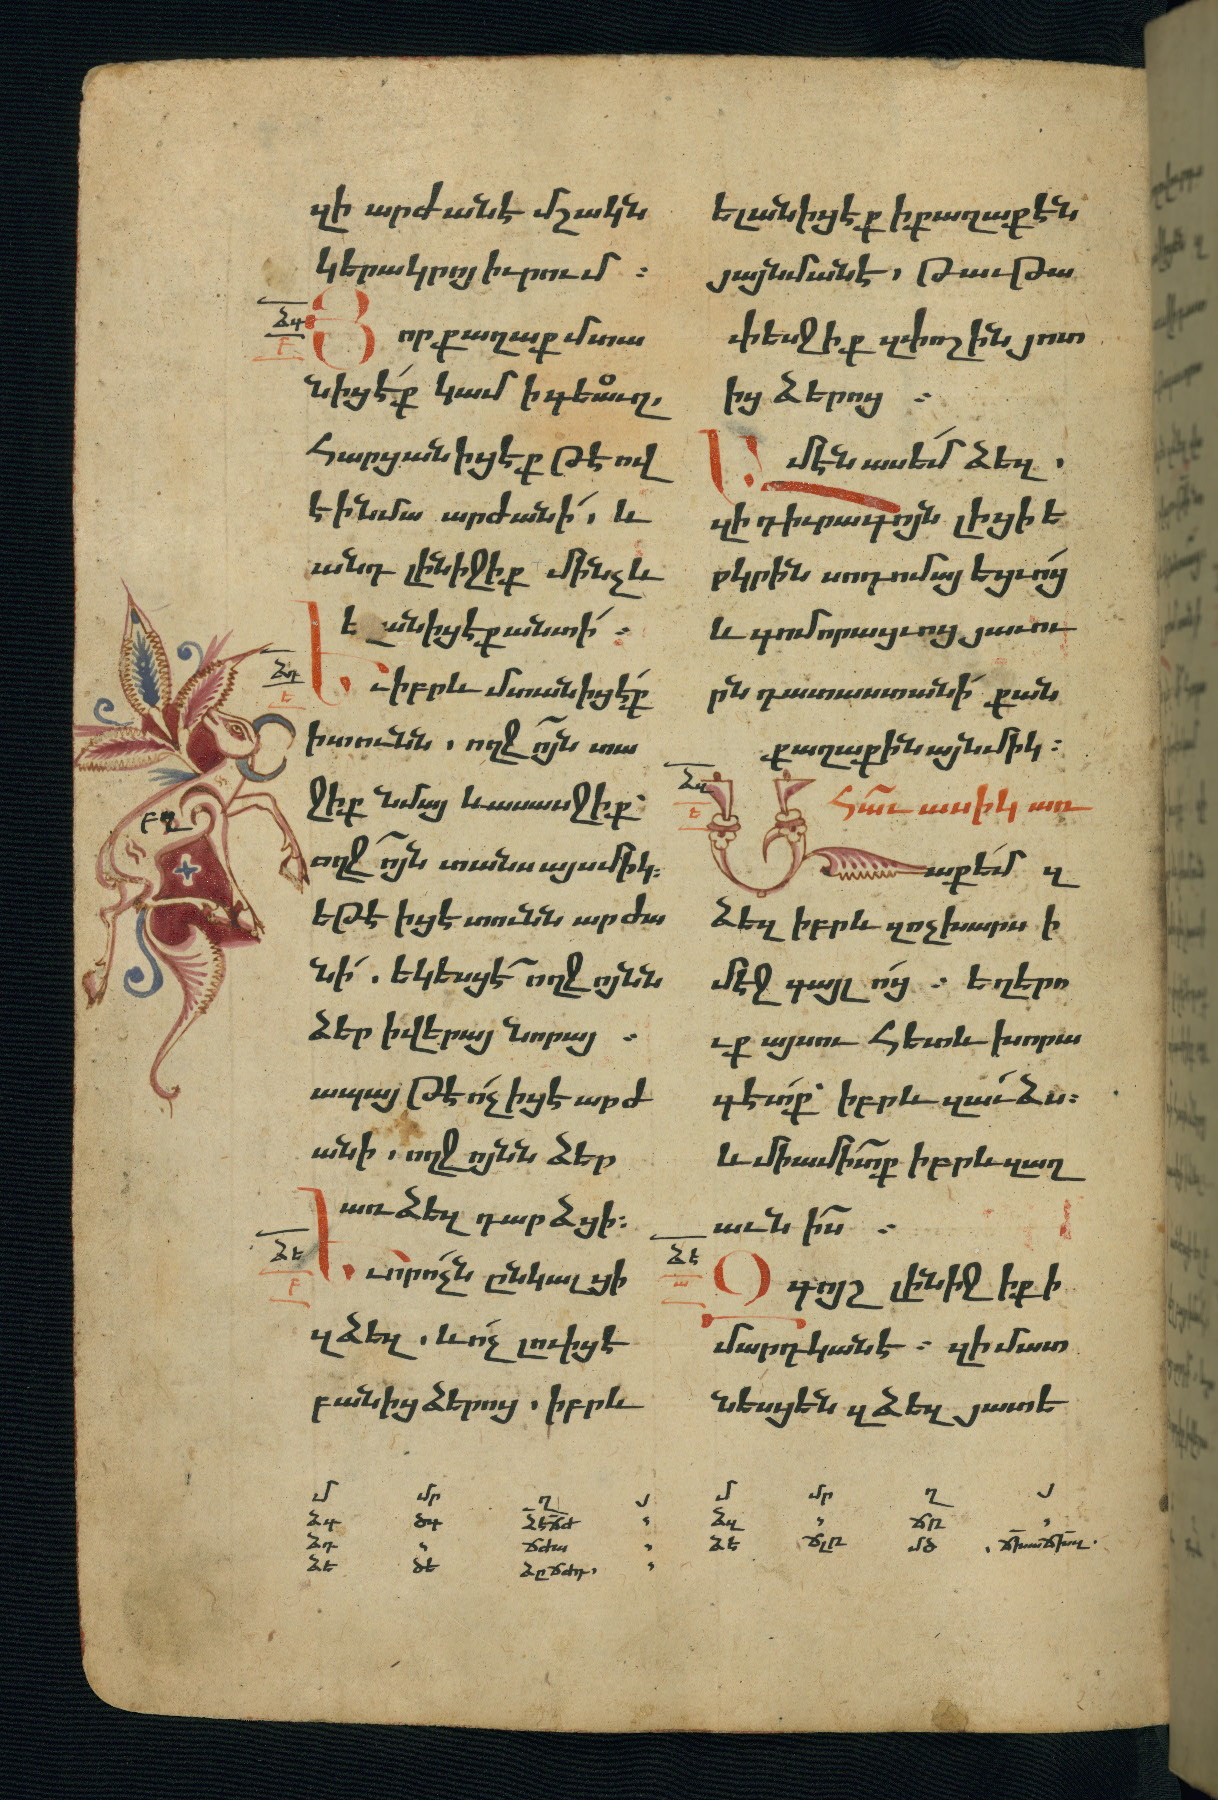 զի արժանէ մշակն
կերակրոյ իւրում ։
ՁԳ
Բ
Յոր քաղաք մտա
նիցէք կամ ի գեաւղ,
հարցանիցէք թէ ով
է ի նմա արժանի, և
անդ լինիջիք մինչև
ելանիցէք անտի ։
ՁԴ
Ե
Եւ իբրև մտանիցէք
ի տունն, ողջոյն տա
ջիք նմայ և ասասջիք՝
ողջոյն տանս այսմիկ։
եթէ իցէ տունն արժա
նի. եկեսցէ ողջոյնն
ձեր ի վերայ նորայ ։
ապայ թէ ոչ իցէ արժ
անի, ողջոյնն ձեր
առ ձեզ դարձցի։
ՁԵ
Բ
Եւ որ ոչն ընկալցի
զձեզ, և ոչ լուիցէ
բանից ձերոց, իբրև
ելանիցէք ի քաղաքէն
յայնմանէ, թաւթա
փեսջիք զփոշին յոտ
ից ձերոց ։
Ամէն ասեմ ձեզ,
զի դիւրագոյն լիցի ե
րկրին սոդոմայեցւոց
և գոմորացւոց յաւու
րն դատաստանի քան
քաղաքին այնմիկ։
ՁԶ
Ե
Ահաւասիկ առ
աքեմ զ
ձեզ իբրև զոչխարս ի
մէջ գայլոց ։ եղերո
ւք այսու հետև խորա
գէտք՝ իբրև զաւձս։
և միամիտք իբրև զաղ
աւնիս ։
ՁԷ
Ա
Զգոյշ լինիջիք ի
մարդկանէ ։ զի մատ
նեսցեն զձեզ յատե
Մ ՄՐ Ղ Յ
ՁԳ
ՁԴ
ՁԵ
Մ ՄՐ Ղ Յ
ՁԶ
ՁԷ